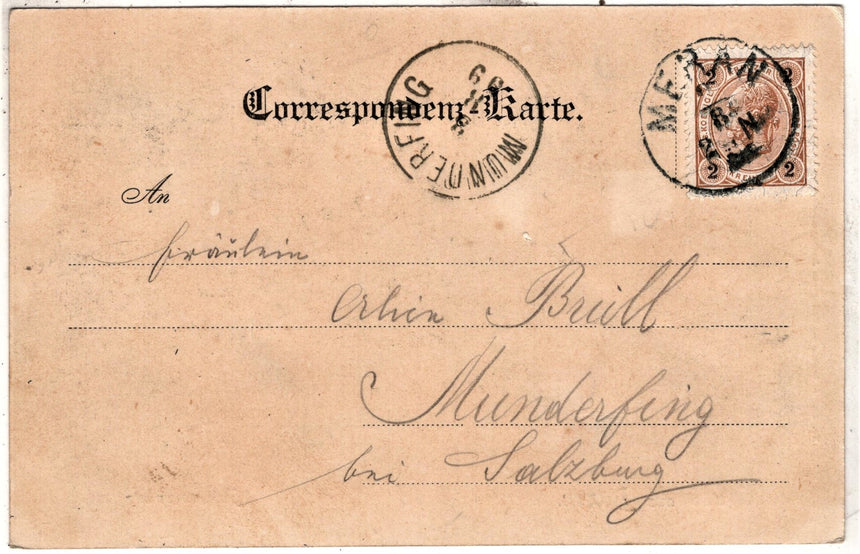 Correspondenz-Karte.
MUNDERFING
99
MERAN
2 2
2 2
An
Fräulein
Brüll
Munderfing
bei Salzburg